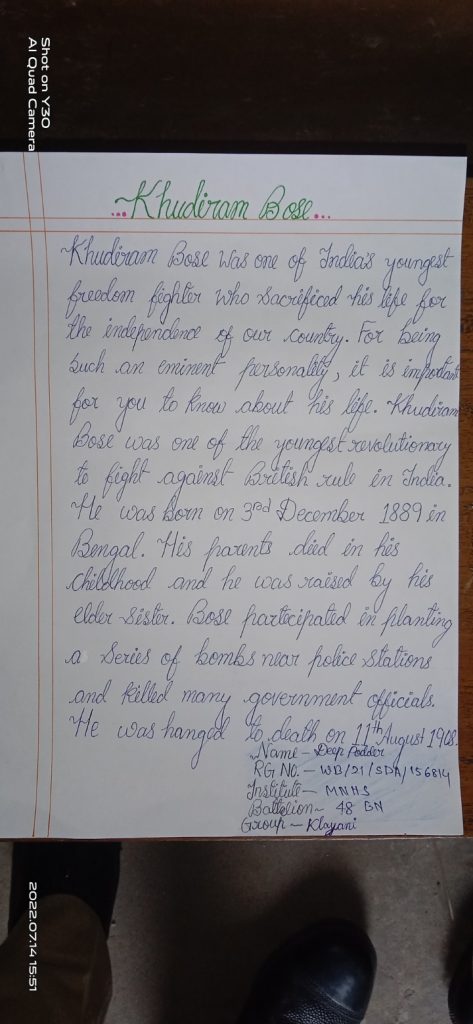 Shot on Y30
AI Quad Camera
...Khudiram Bose...
Khudiram Bose was one of India's youngest
freedom fighter who sacrificed his life for
the independence of our country. For being
such an eminent personality, it is important
for you to know about his life. Khudiram
Bose was one of the youngest revolutionary
to fight against British rule in India.
He was born on 3rd December 1889 in
Bengal. His parents died in his
childhood and he was raised by his
elder sister. Bose participated in planting
a series of bombs near police stations
and killed many government officials.
He was hanged to death on 11th August 1908.
Name - Deep Podder
RG NO. - WB/21/SDA/156814
Institute - MNHS
Battelion - 48 BN
Group - Klayani
2022.07.14 15:51